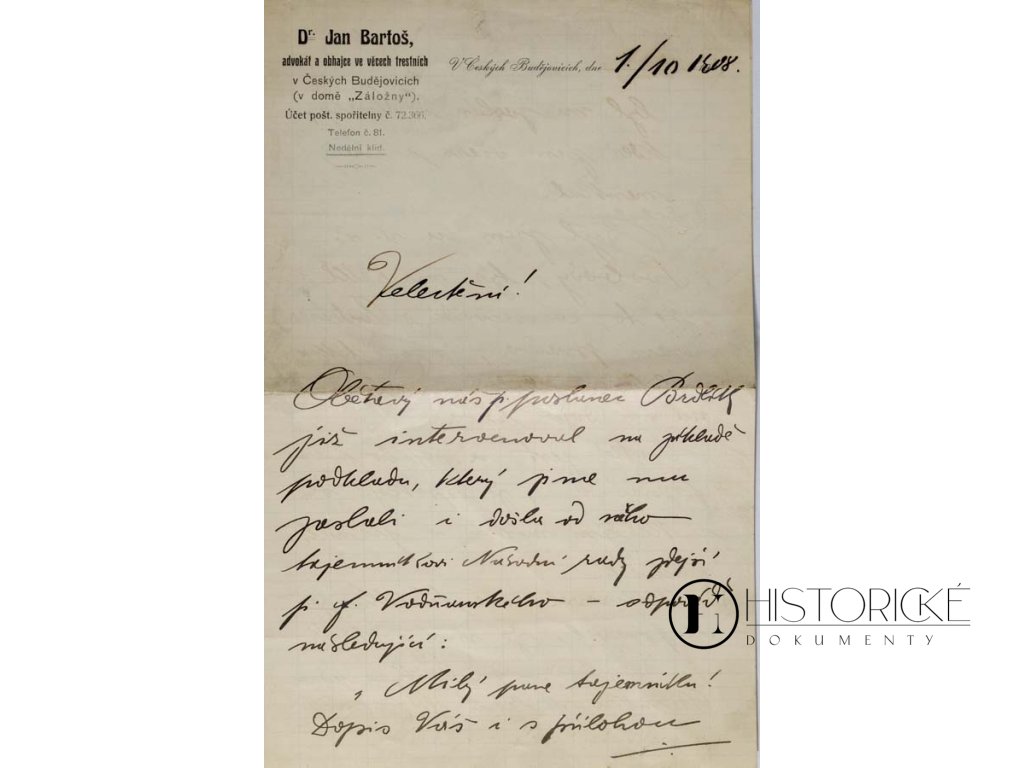 Dr. Jan Bartoš,
advokát a obhajce ve věcech trestních
v Českých Budějovicích
(v domě „Záložny").
Účet pošt. spořitelny č. 72.366.
Telefon č. 81.
Nedělní klid.
V Českých Budějovicích, dne 1./10 1908.
Velectění!
Obětavý náš p. poslanec
již intervenoval na základě
podkladu, který jsme mu
zaslali i došla od něho
tajemníkovi Národní rady zdejší
p. f. Vodňanského – odpověď
následující:
„Milý pane tajemníku!
Dopis Váš i s přílohou
HISTORICKÉ
DOKUMENTY